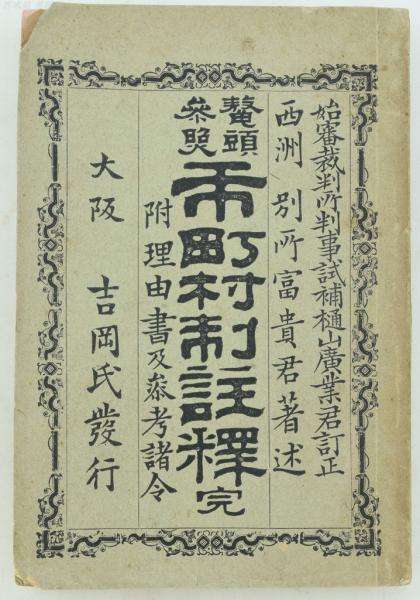 始審裁判所判事試補樋山廣業君訂正
西洲 別所富貴君著述
鼇頭參照
市町村制註釋 完
附理由書及叅考諸令
大阪 吉岡氏發行